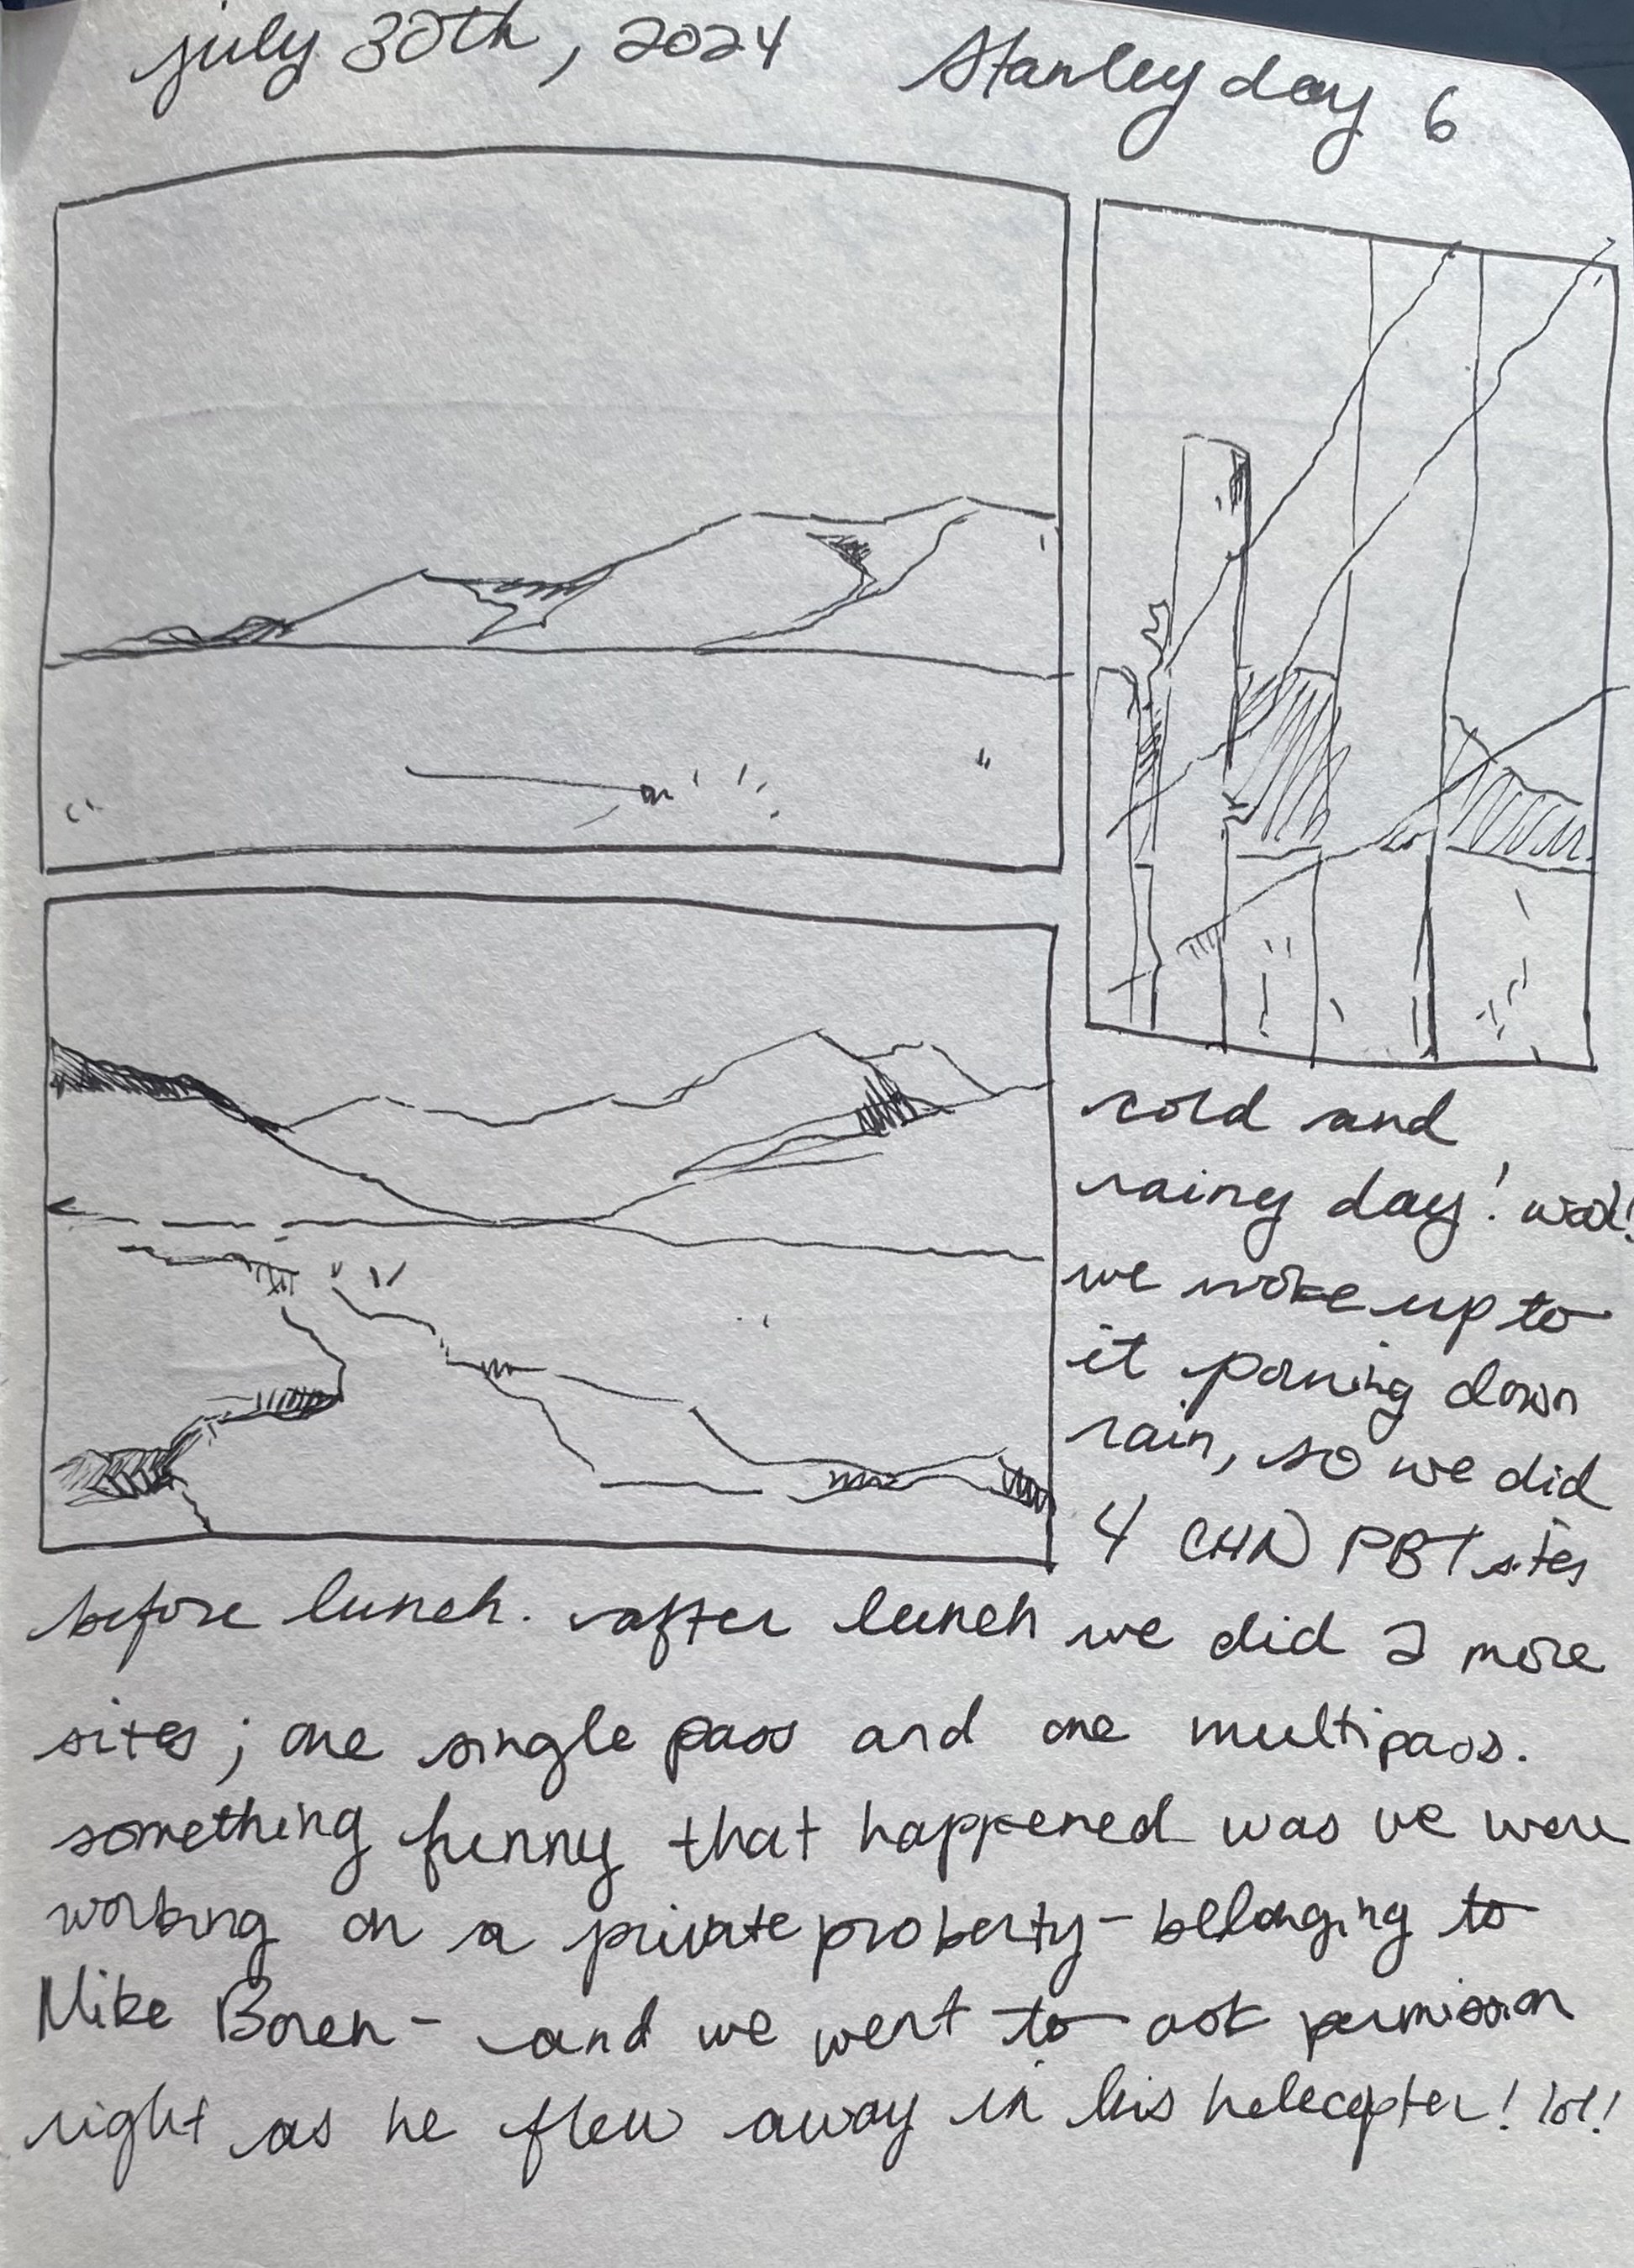 july 30th, 2024 Stanley day 6
cold and
rainy day! woah!
we woke up to
it pouring down
rain, so we did
4 CHN PBT sites
before lunch. after lunch we did 2 more
sites; one single pass and one multipass.
something funny that happened was we were
working on a private property - belonging to
Mike Boren - and we went to ask permission
right as he flew away in his helecopter! lol!